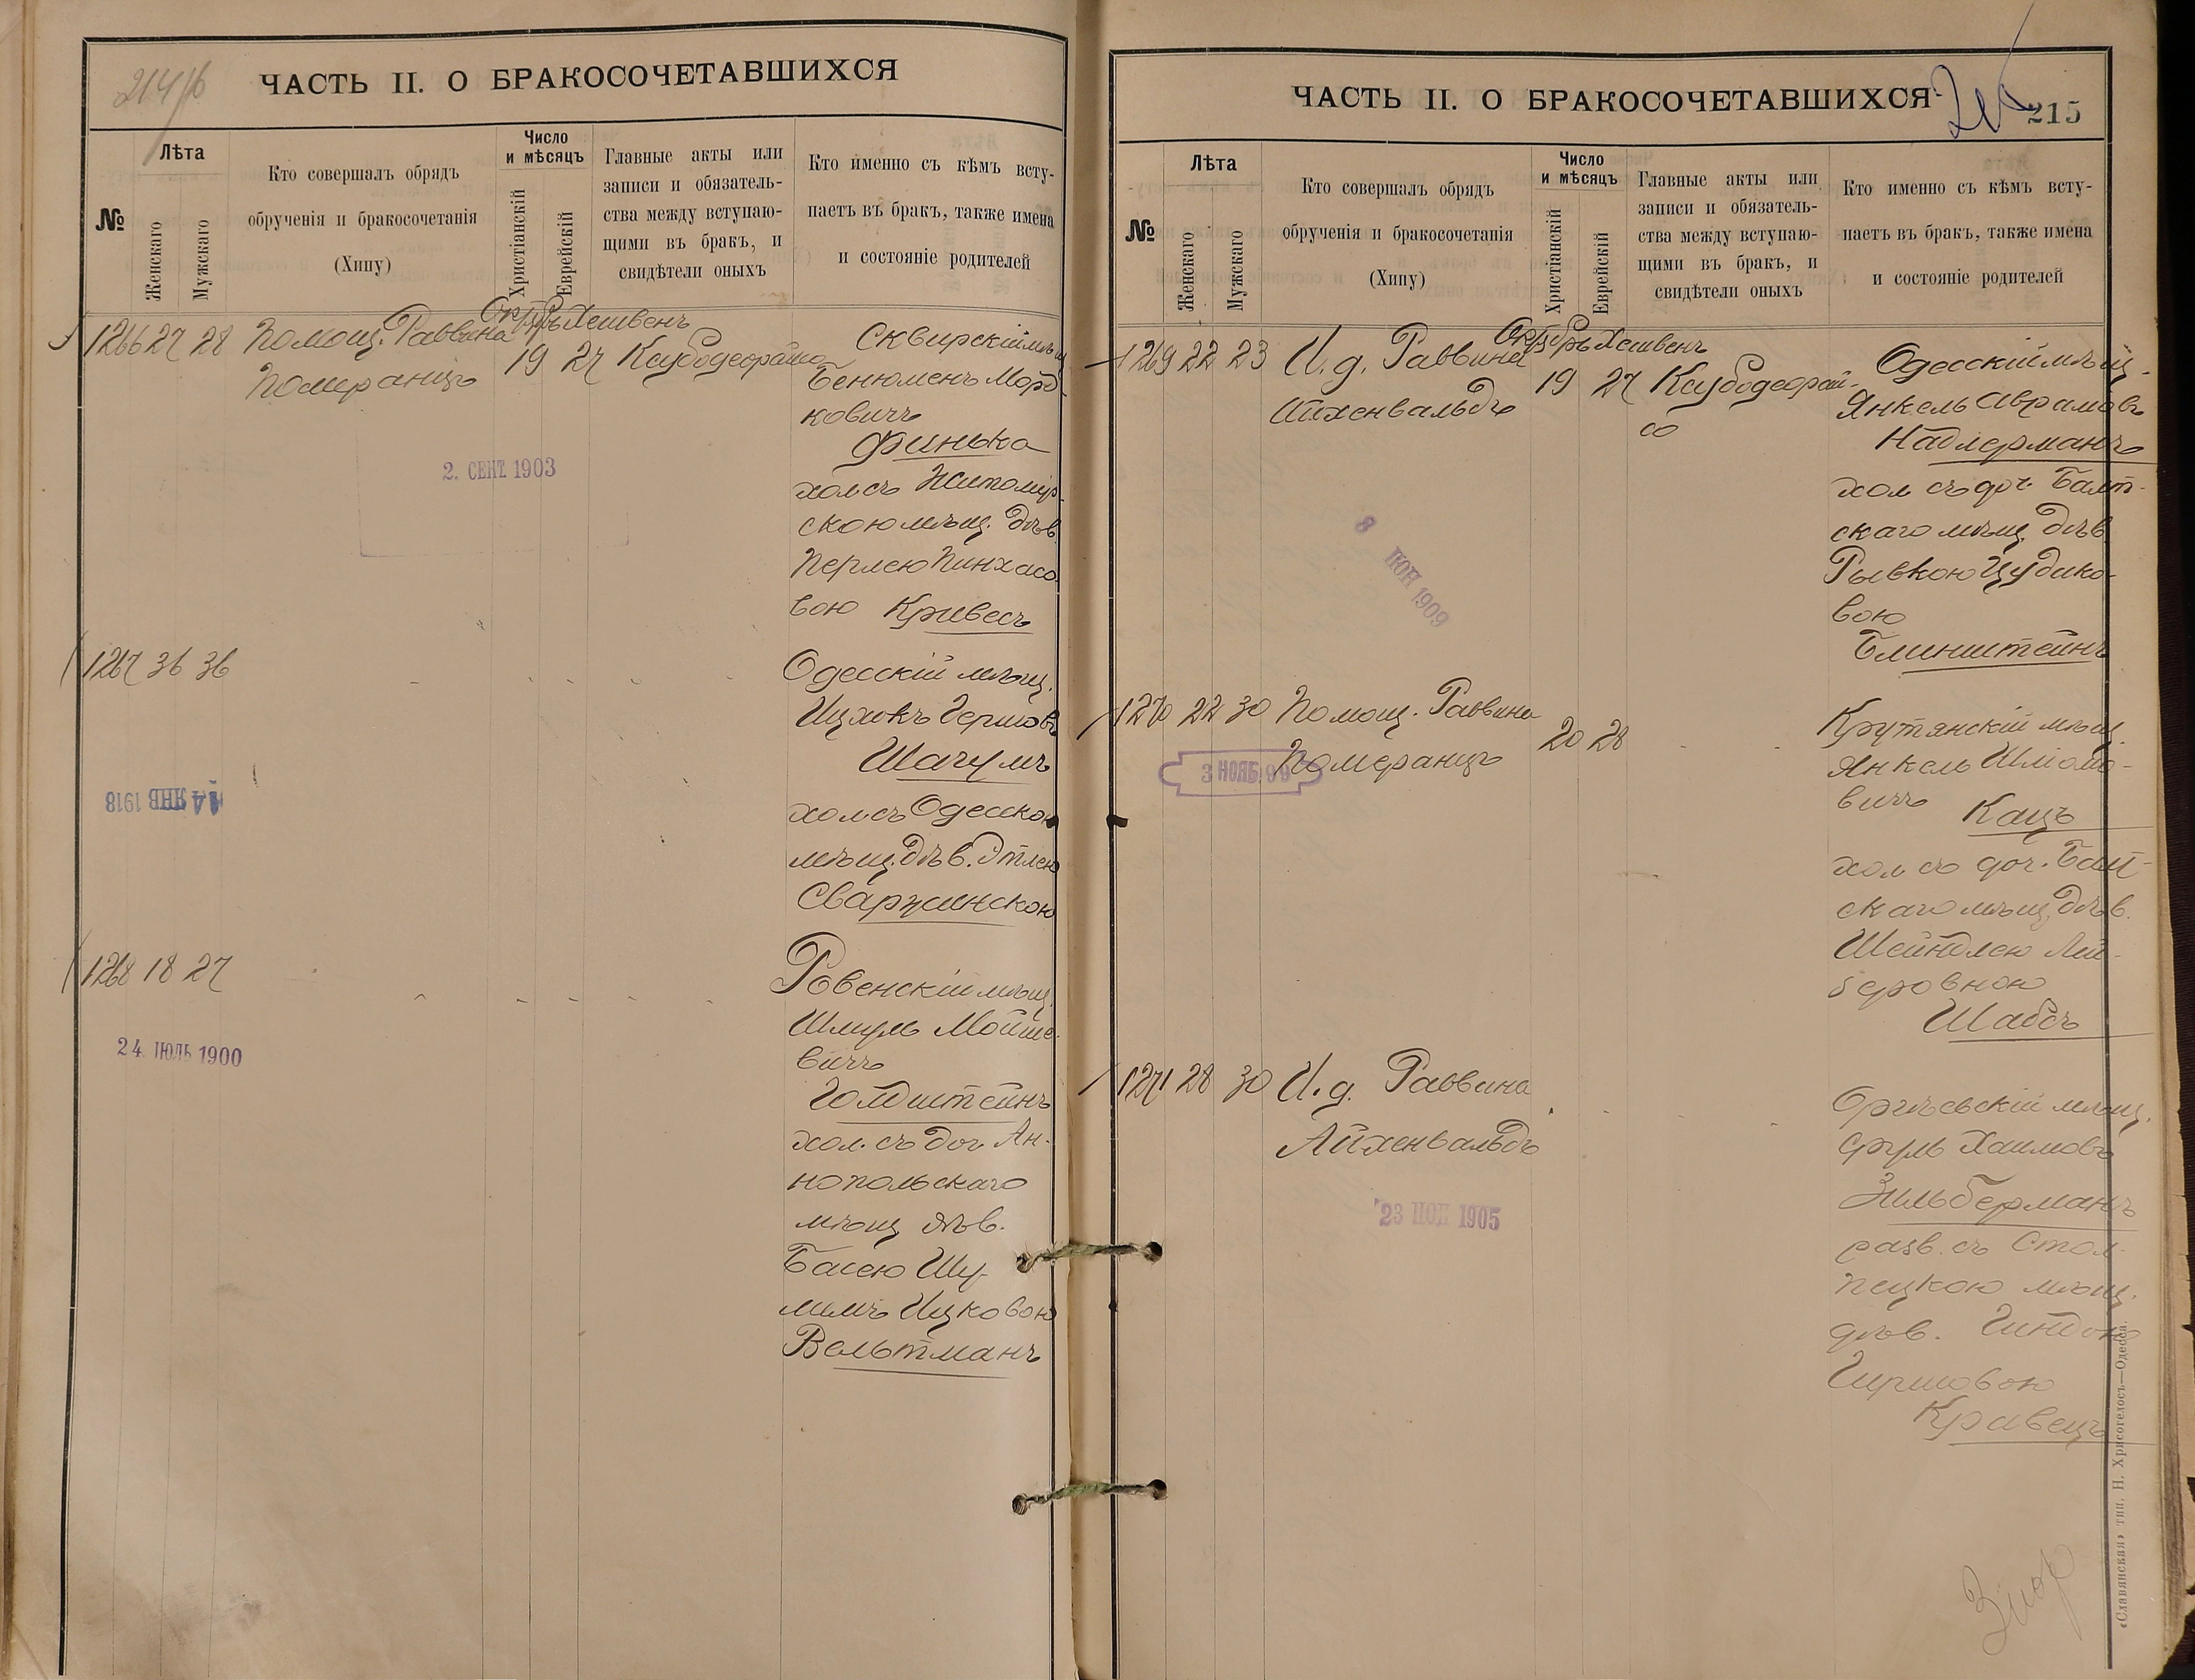 214/б
ЧАСТЬ II. О БРАКОСОЧЕТАВШИХСЯ
№
Лѣта
Женскаго
Мужскаго
Кто совершалъ обрядъ
обрученія и бракосочетанія
(Хипу)
Число
и мѣсяцъ
Христіанскій
Еврейскій
Главные акты или
записи и обязатель-
ства между вступаю-
щими въ бракъ, и
свидѣтели оныхъ
Кто именно съ кѣмъ всту-
паетъ въ бракъ, также имена
и состояніе родителей
Октябрь Хешвенъ
1266 27 28 Помощ. Раввина
Померанцъ
19 27
Сквирскій мѣщ
Бенюменъ Морд
ковичъ
Финька
хол съ Житомір-
скою мѣщ. дѣв.
Перлею Пинхасо
вою Кривесъ
2. СЕНТ. 1903
1267 36 36
Одесскій мѣщ.
Ицхокъ Гершовъ
Шагумъ
хол. съ Одесскою
мѣщ. дѣв. Этлею
Сваржинскою
14 ЯНВ 1918
1268 18 27
Ровенскій мѣщ.
Шмуль Мойше-
вичъ
Голдштейнъ
хол. съ доч Ан-
нопольскаго
мѣщ дѣв.
Басею Шу-
лимъ Ицковою
Вельтманъ
24. ІЮЛЬ 1900
ЧАСТЬ II. О БРАКОСОЧЕТАВШИХСЯ
215
№
Лѣта
Женскаго
Мужскаго
Кто совершалъ обрядъ
обрученія и бракосочетанія
(Хипу)
Число
и мѣсяцъ
Христіанскій
Еврейскій
Главные акты или
записи и обязатель-
ства между вступаю-
щими въ бракъ, и
свидѣтели оныхъ
Кто именно съ кѣмъ всту-
паетъ въ бракъ, также имена
и состояніе родителей
Октябрь Хешвенъ
1269 22 23 И. д. Раввина
Айхенвальдъ
19 27
Одесскій мѣщ.
Янкель Аврамовъ
Надлерманъ
хол съ доч. Балт-
скаго мѣщ дѣв.
Рывкою Цудико-
вою
Блинштейнъ
8 ІЮН 1909
1270 22 30 Помощ. Раввина
Померанцъ
20 28
Крутянскій мѣщ.
Янкель Шліомо-
вичъ Кацъ
хол съ доч. Балт-
скаго мѣщ. дѣв.
Шейндлею Лей-
беровною
Шабсъ
3 НОЯБ 99
1271 28 30 И. д. Раввина
Айхенвальдъ
мѣщ.
Сруль Хаимовъ
Зильберманъ
разв. съ Стол-
пецкою мѣщ.
дѣв. Гиндою
Гиршовою
Кравецъ
23 1905
«Славянская» тип. Н. Хрисогелосъ—Одесса.